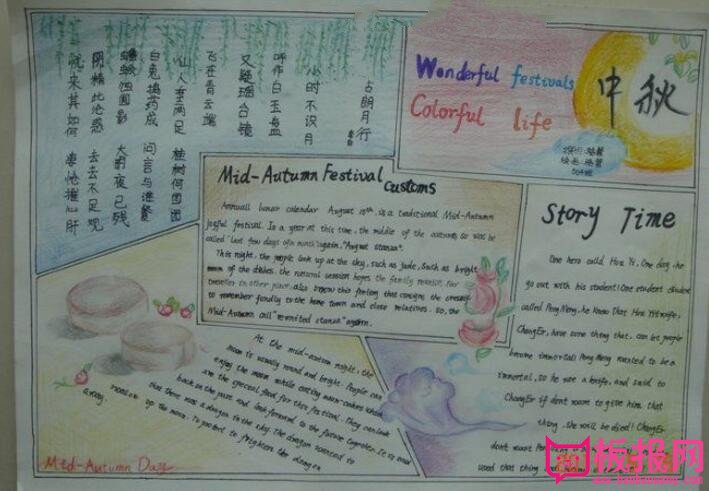 古朗月行
李白
小时不识月
呼作白玉盘
又疑瑶台镜
飞在青云端
仙人垂两足 桂树何团团
白兔捣药成 问言与谁餐
蟾蜍蚀圆影 大明夜已残
阴精此沦惑 去去不足观
忧来其如何 凄怆摧心肝
Wonderful festivals
Colorful life
中秋
Mid-Autumn Festival
Customs
Annuall lunar calendar August 15th, is a traditional Mid-Autumn
joyful festival. Is a year at this time, the middle of the
called "last few days of again, "August stanza".
This night, the people look up at the sky, such as jade, such as bright
moon of the dishes, the natural session hopes the family reunion. Far
traveller in other place, also know this feeling that consigns the
to remember fondly to the home town and close relatives. So, the
Mid-Autumn call "reunited stanza" again.
Story Time
One hero calld Hou Yi, One day, he
go out with his student! One student
called Peng Meng, he know that Hou Yi wife,
Chang Er, have some thing that, can let people
become immortal! Peng Meng wanted to be a
immortal, so he use a knife, and said to
Chang Er if don't want to give him that
thing, she will be died! Chang Er
don't want Peng
used that thing
At the mid-autumn night, the
moon is usually round and bright. People can
enjoy the moon while eating moon-cakes which
are the special food for this festival. They can look
back on the past and look forward to the future together. It is said
that there was a dragon in the sky. The dragon wanted to
swallow up the moon. To protect to frighten the dragon
away.
Mid-Autumn Day
板报网